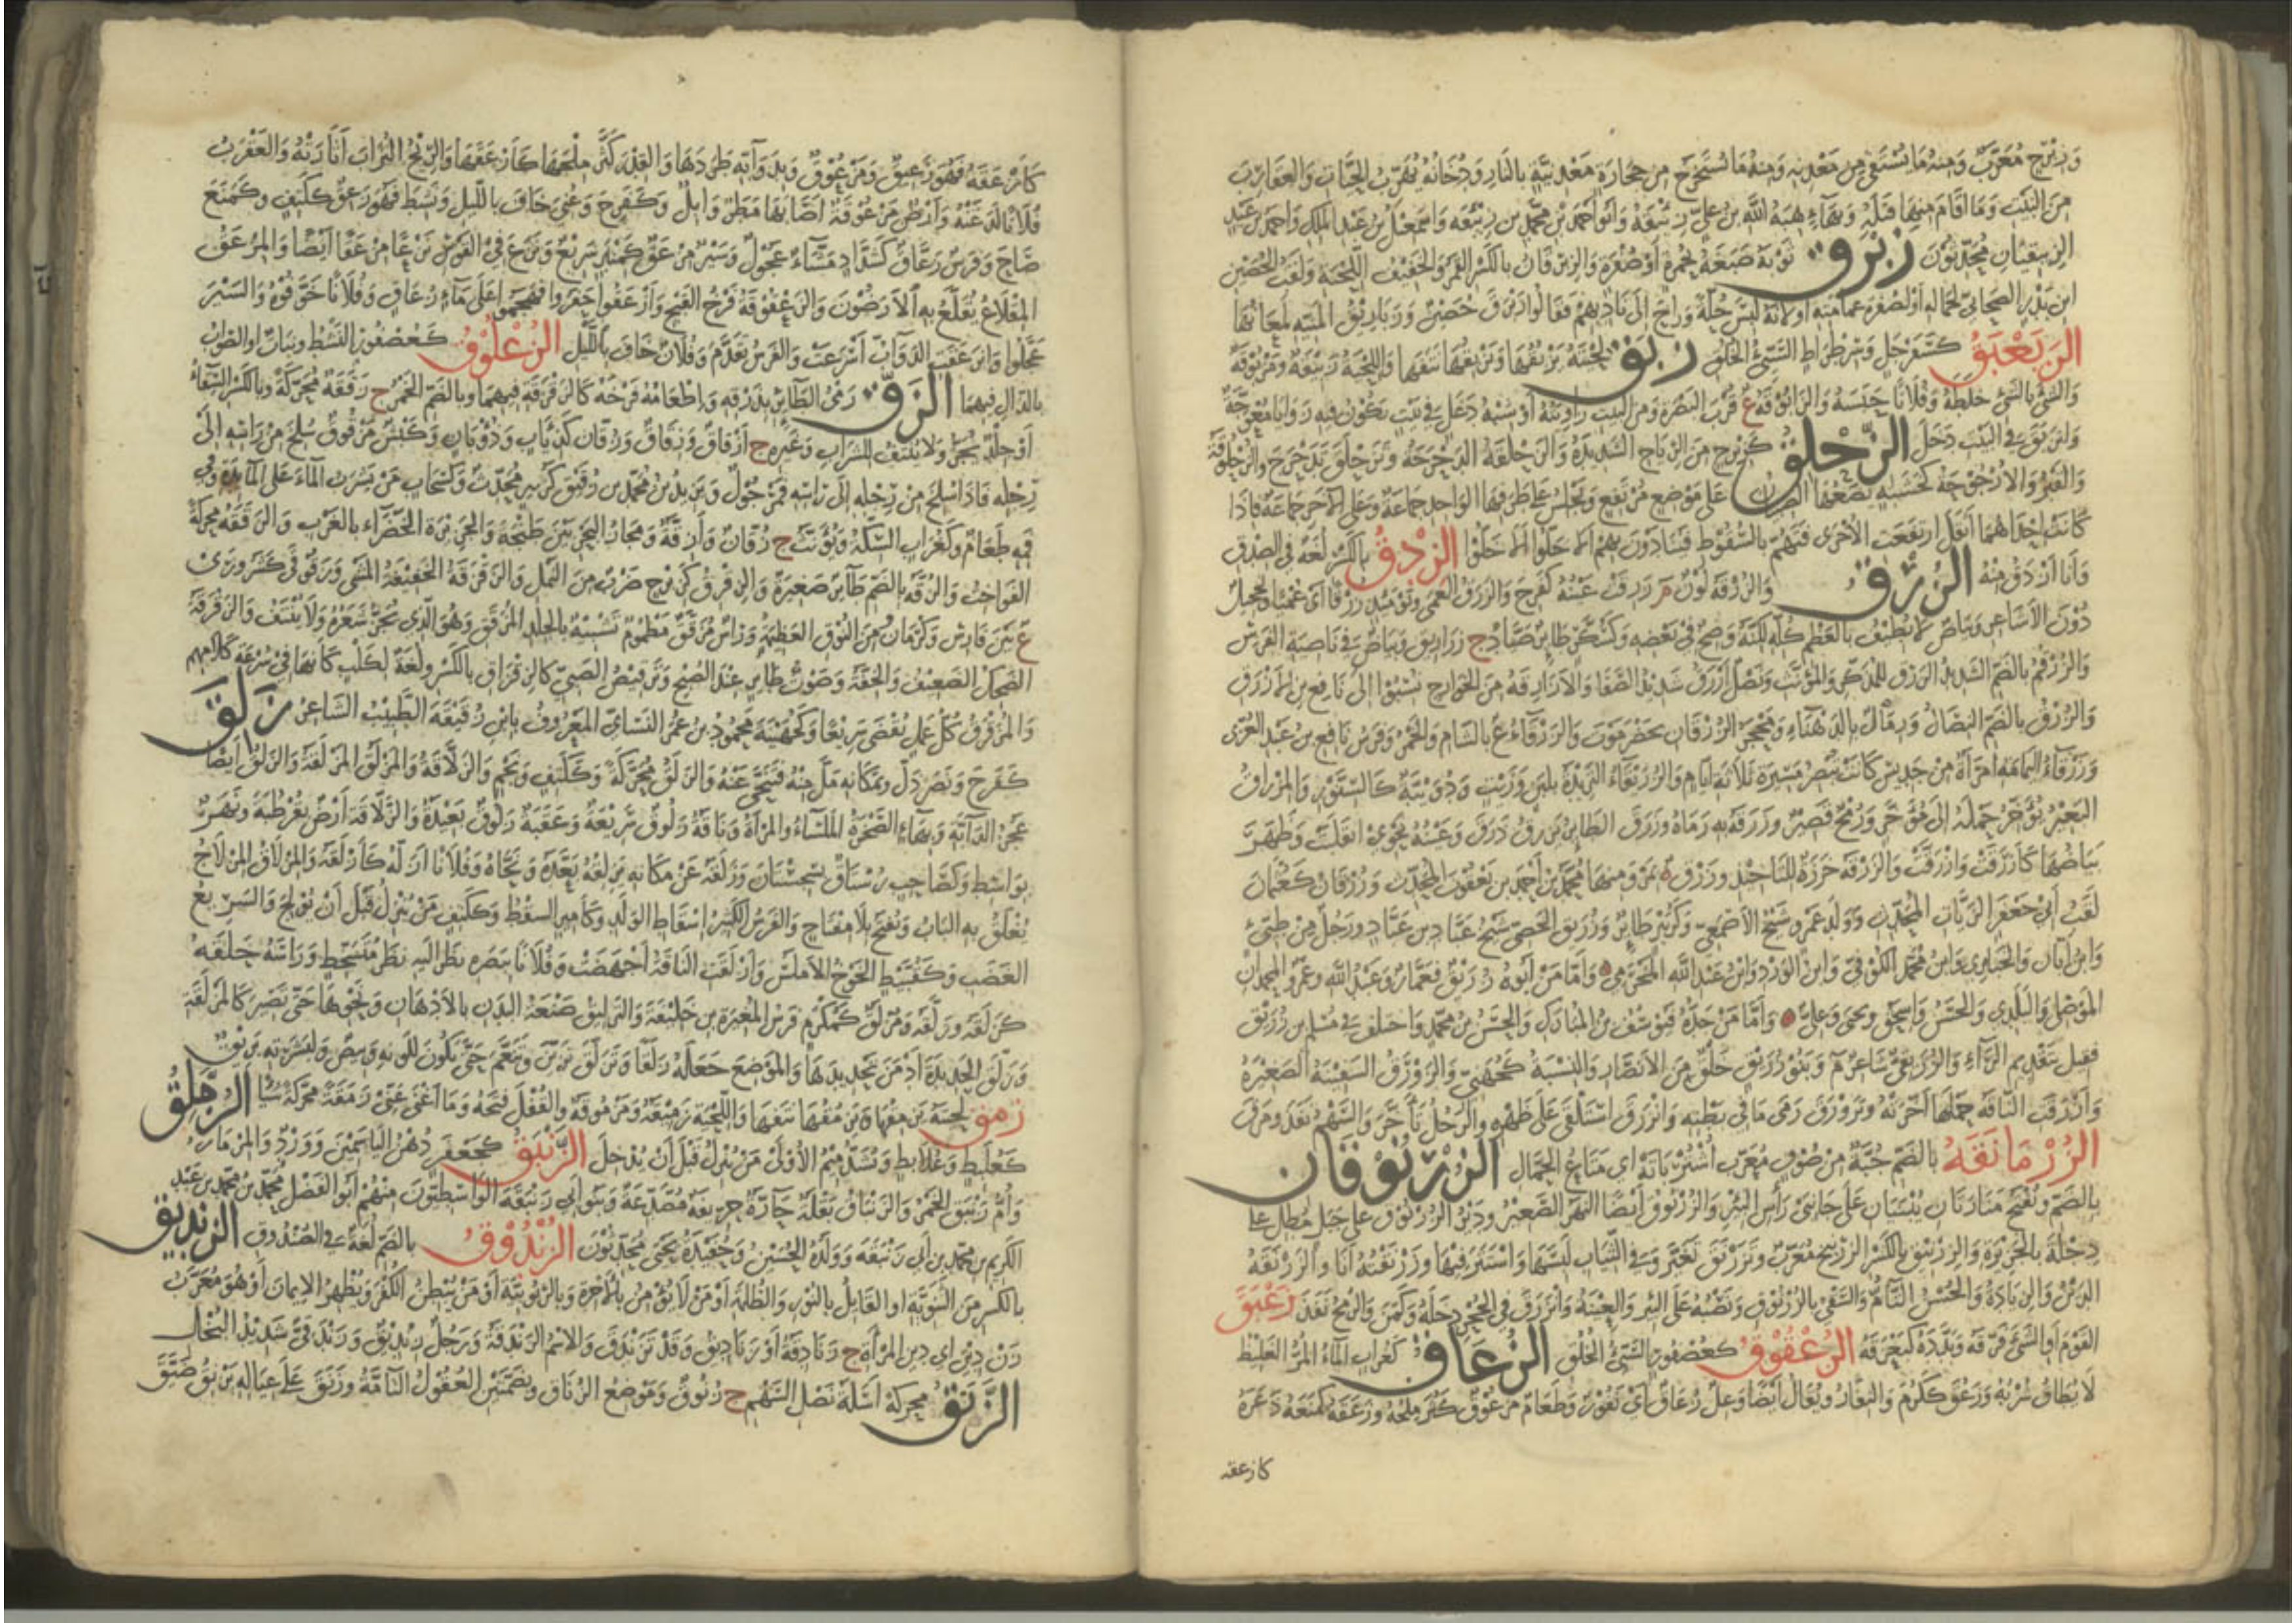 وزبرج معرب ومنه ما يستقى من معدنه ومنه ما يستخرج من حجارة معدنية بالنار ودخانه يقرب الحيات والعقارب
من البيت وما اقام منها قتله وبهاء هبة الله بن علي بن زيبقة وابو احمد بن محمد بن زيبقه واسمعيل بن عبد الملك واحمد بن عبيد
الزيبقيان محدثون زبرق ثوبه صبغه بحمرة او صفرة والزبرقان بالكسر القمر والخفيف اللحية ولقب الحصين
ابن بدر الصحابي لجماله او لصفرة عمامته او لانه لبس حلة وراح الى ناديهم فقالوا زبرق حصين وزباريق المنية لمعانها
الزبعبق كسفرجل وسرطراط السيئ الخلق زبق لحيته يزبقها ويزبقها نتفها واللحية زبيقة ومزبوقة
والشئ بالشئ خلطه وفلانا حبسه والزابوقة ع قرب البصرة ومن البيت زاويته او شبه دغل في بيت يكون فيه زوايا معوجة
وانزبق في البيت دخل الزحلق كزبرج من الرياح الشديدة والزحلقة الدحرجة وتزحلق تدحرج والزحلوقة
والقبر والارجوحة لخشبة يضعها الصبيان على موضع مرتفع ويجلس على طرفها الواحد جماعة وعلى الاخر جماعة فاذا
كانت احداهما اثقل ارتفعت الاخرى فتهم بالسقوط فينادون بهم الا خلوا الا خلوا الزدق بالكسر لغة في الصدق
وانا ازدق منه الزرق والزرقة لون م زرقت عينه كفرح والزرق العمى ويومئذ زرقا اى عميا وتحجيل
دون الاشاعر وبياض لا يطيف بالعظم كله لكنه وضح في بعضه وكسكر طاير صياد ج زراريق وبياض في ناصية الفرس
والزرقم بالضم الشديد الزرق للمذكر والمؤنث ونصل ازرق شديد الصفا والازارقة من الخوارج نسبوا الى نافع بن الازرق
والزرق بالضم النصال ورمال بالدهناء ومحجر الزرقان بحضرموت والزرقاء ع بالشام والخمر وفرس نافع بن عبد العزى
وزرقاء اليمامة امرأة من جديس كانت تبصر مسيرة ثلاثة ايام والزريقاء الثريدة بلبن وزيت ودويبة كالسنور والمزراق
البعير يؤخر حمله الى مؤخر ورمح قصير وزرقه به رماه وزرق الطاير يزرق ذرق وعينه نحوى انقلبت وظهر
بياضها كازرقت وازراقت والزرقة خرزة للتاخيذ وزرق ة بمرو منها محمد بن احمد بن يعقوب المحدث وزرقان كعثمان
لقب ابي جعفر الزيات المحدث ووالد عمرو شيخ الاصمعي وكزبير طاير وزريق الخصي شيخ عباد بن عباد ورجل من طيئ
وابن ابان والخبايري وابن محمد الكوفي وابن الورد وابن عبد الله المخرمي واما من ابوه زريق فعمار وعبد الله وعمرو والهيثم
الموصلي والبلدي والحسن واسحق ويحيى وعلي واما من جده فيوسف بن المبارك والحسن بن محمد واختلف في مسلم بن زريق
فقيل بتقديم الراء والزريقي شاعر م وبنو زريق خلق من الانصار والنسبة كجهني والزورق السفينة الصغيرة
وازرقت الناقة حملها اخرته وتزورق رمى ما في بطنه وانزرق استلقى على ظهره والرجل تاخر والسهم نفذ ومرق
الزرمانقة بالضم جبة من صوف معرب اشتربانه اي متاع الجمال الزرنوقان
بالضم ويفتح منارتان يبنيان على جانبي رأس البئر والزرنوق ايضا النهر الصغير ودير الزرنوق على جبل مطل على
دجلة بالجزيرة والزرنيق بالكسر الزرنيخ معرب وتزرنق تغبر وفي الثياب لبسها واستتر فيها وزرنقته انا والزرنقة
الدين والزيادة والحسن التام والسقى بالزرنوق ونصبه على البئر والعينة وانزرق في الجحر دخله وكمن والرمح نفذ زعبق
القوم او الشئ فرقه وبدده كبعزقه الزعقوق كعصفور السيئ الخلق الزعاق كغراب الماء المر الغليظ
لا يطاق شربه وزعق ككرم والنفار ويقال ايضا وعل زعاق اي نفور وطعام مزعوق كثر ملحه وزعقه كمنعه ذعره
كازعقه
كازعقه فهو زعيق ومزعوق وبدوابه طردها والقدر كثر ملحها كازعقها والريح التراب اثارته والعقرب
فلانا لدغته وارض مزعوقة اصابها مطر وابل وكفرح وعنى خاف بالليل ونشط فهو زعق ككتف وكمنع
صاح وفرس زعاق كشداد مشاء عجول وسير مزعق كمنبر سريع ونزع في القوس نزعا مزعقا ايضا والمزعق
المقلاع يقلع به الارضون والزعقوقة فرخ القبج وازعقوا حفروا فهجموا على ماء زعاق وفلانا خوفوه والسير
عجلوا وانزعقت الدواب اسرعت والفرس تقدم وفلان خاف بالليل الزعلوق كعصفور النشط ونبات او الصواب
بالذال فيهما الزق رمى الطاير بذرقه واطعامه فرخه كالزقزقة فيهما وبالضم الخمر ج زققة محركة وبالكسر السقاء
او جلد يجز ولا ينتف للشراب وغيره ج ازقاق وزقاق وزقان كذياب وذوبان وكبش مزقوق سلخ من راسه الى
رجله فاذا سلخ من رجله الى راسه فمرجول ويزيد بن محمد بن زقيق كزبير محدث وكسحاب من يشرب الماء على المايدة وفي
فيه طعام وكغراب السكة ويؤنث ج زقان وازقة ومجاز البحر بين طنجة والجزيرة الخضراء بالغرب والزققة محركة
الفواخت والزقة بالضم طاير صغير والزقزق كزبرج ضرب من النمل والزقزقة الخفيفة المشي وزقوقى كشرورى
ع بين فارس وكرمان من النوق العظيمة وراس مزقق مطموم تشبيه بالجلد المزقق وهو الذي يجز شعره ولا ينتف والزقزقة
الضحك الضعيف والخفة وصوت طاير عند الصبح وترقيص الصبي كالزقزاق بالكسر ولغة لكلب كانها في سرعة كلامهم
والمزقزق كل عمل يقضى سريعا وكجهينة محمود بن عمر النسائي المعروف بابن زقيقة الطبيب الشاعر زلق
كفرح ونصر زل وبمكانه مل منه فتنحى عنه والزلق محركة وككتف ونجم والزلاقة والمزلق المزلقة والزلق ايضا
عجز الدابة وبهاء الصخرة الملساء والمراة وناقة زلوق سريعة وعقبة زلوق بعيدة والزلاقة ارض بقرطبة ونهر
بواسط وكصاحب رستاق بسجستان وزلقه عن مكانه يزلقه بعده ونحاه وفلانا ازله كازلقه والمزلاق المزلاج
يغلق به الباب ويفتح بلا مفتاح والفرس الكثير اسقاط الولد وكامير السقط وككتف من ينزل قبل ان يولج والسريع
الغضب وكقبيط الخوخ الاملس وازلقت الناقة اجهضت وفلانا ببصره نظر اليه نظر متسخط وراسه حلقه
كزلقه وزلقه ومزلق كمكرم فرس المغيرة بن خليفة والتزليق صنعة البدن بالادهان ونحوها حتى تصير كالمزلقة
وزلق الحديدة ادمن تحديدها والموضع جعله زلقا وتزلق تزين وتنعم حتى يكون للونه وبيص ولبشرته بريق
زمق لحيته يزمقها نتفها واللحية زميقة ومزموقة والقفل فتحه وما اغنى عني زمقة محركة شيا الزملق
كعلبط وعلابط وتشدد ميم الاولى من ينزل قبل ان يدخل الزنبق كجعفر دهن الياسمين وورد والمزمار
وام زنبق الخمر والزنباق بقلة حارة حريفة مصدعة وبنو ابي زنبقة الواسطيون منهم ابو الفضل محمد بن محمد بن عبد
الكريم بن محمد بن ابي زنبقة وولده الحسين وحفيده يحيى محدثون الزندوق بالضم لغة في الصندوق الزنديق
بالكسر من الثنوية او القايل بالنور والظلمة او من لا يؤمن بالآخرة وبالربوبية او من يبطن الكفر ويظهر الايمان او هو معرب
زن دين اي دين المرأة ج زنادقة او زناديق وقد تزندق والاسم الزندقة ورجل زنديق وزندقي شديد البخل
الزنق محركة اسلة نصل السهم ج زنوق وموضع الزناق وبضمتين العقول التامة وزنق على عياله يزنق ضيق